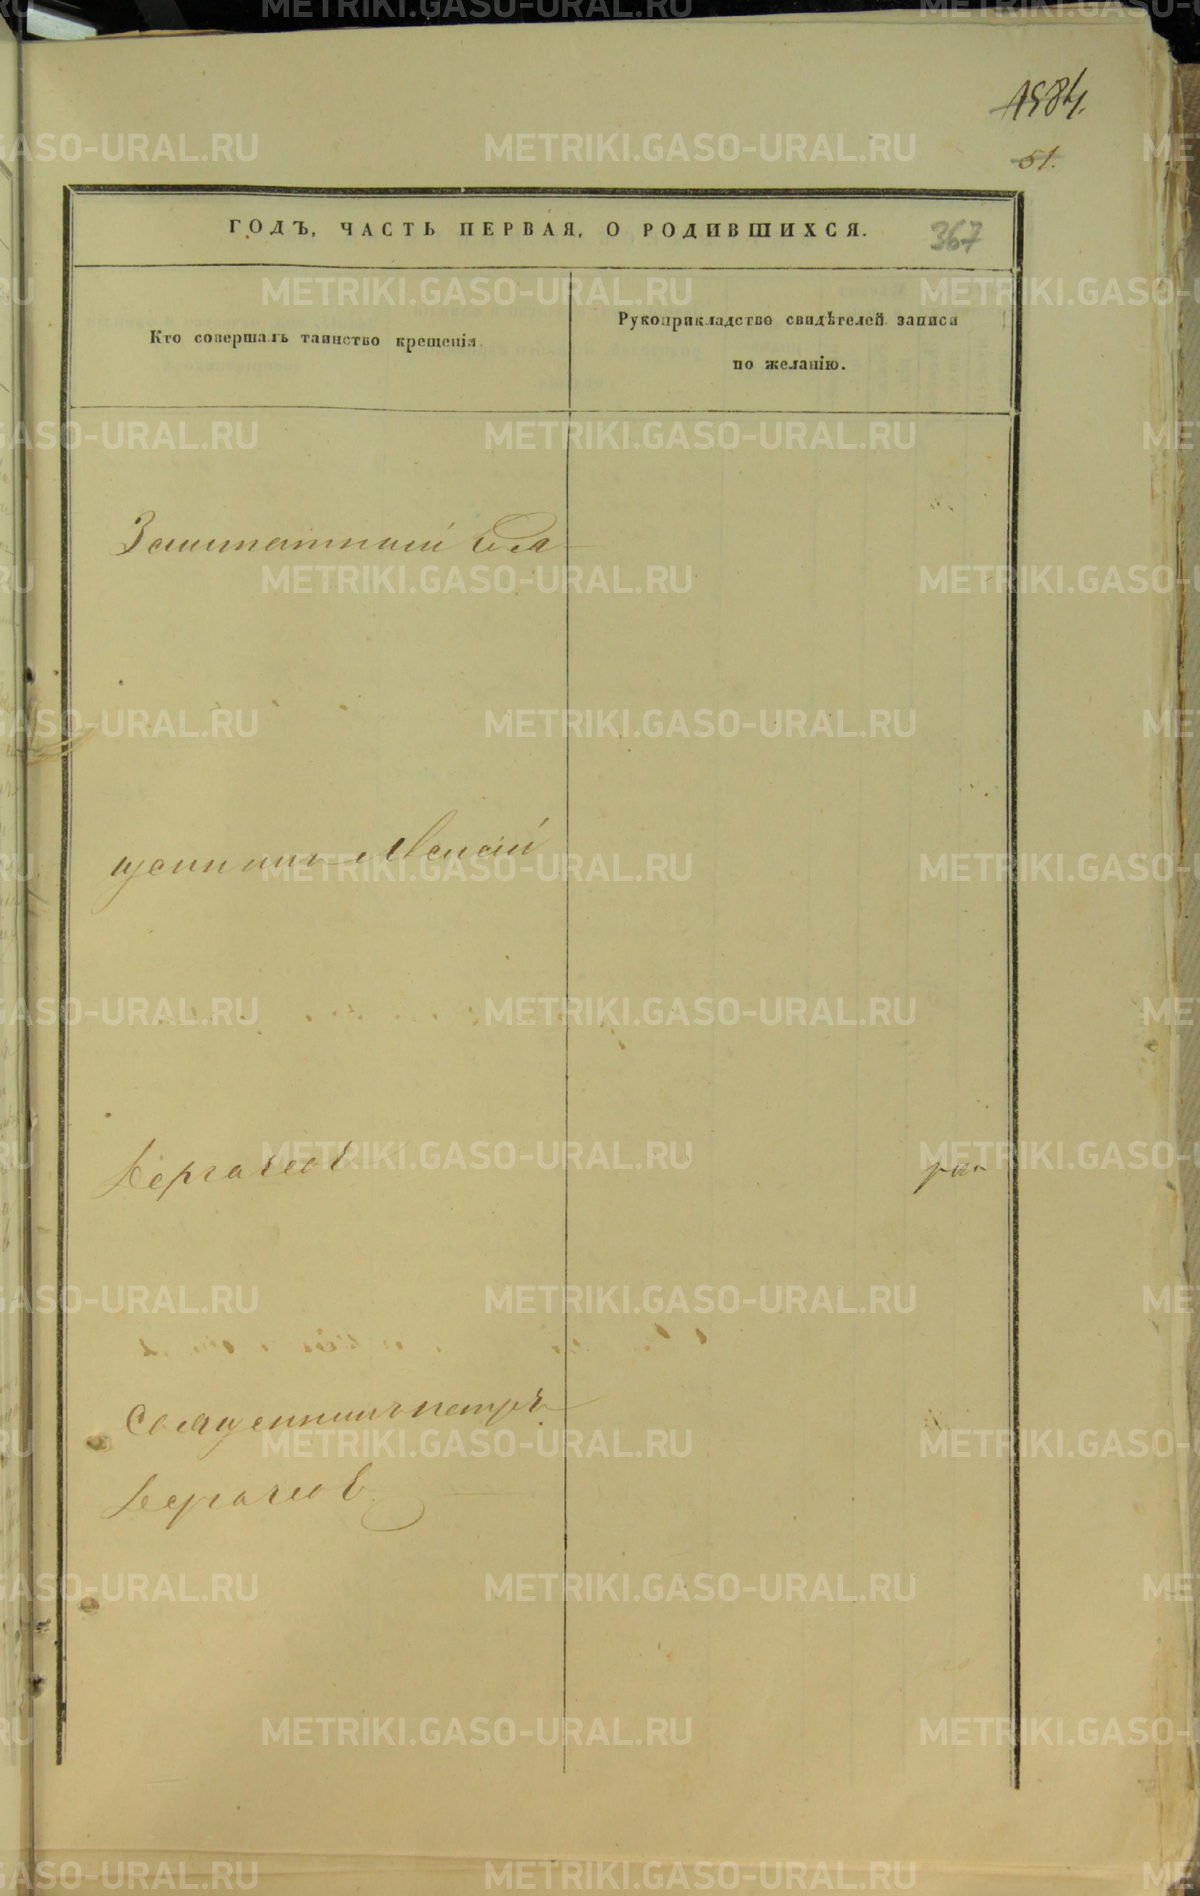 1584.
51.
ГОДЪ, ЧАСТЬ ПЕРВАЯ, О РОДИВШИХСЯ.
367
Кто совершалъ таинство крещенія.
Рукоприкладство свидѣтелей записи
по желанію.
Заштатный свя
щенникъ
Священникъ Петръ
METRIKI.GASO-URAL.RU